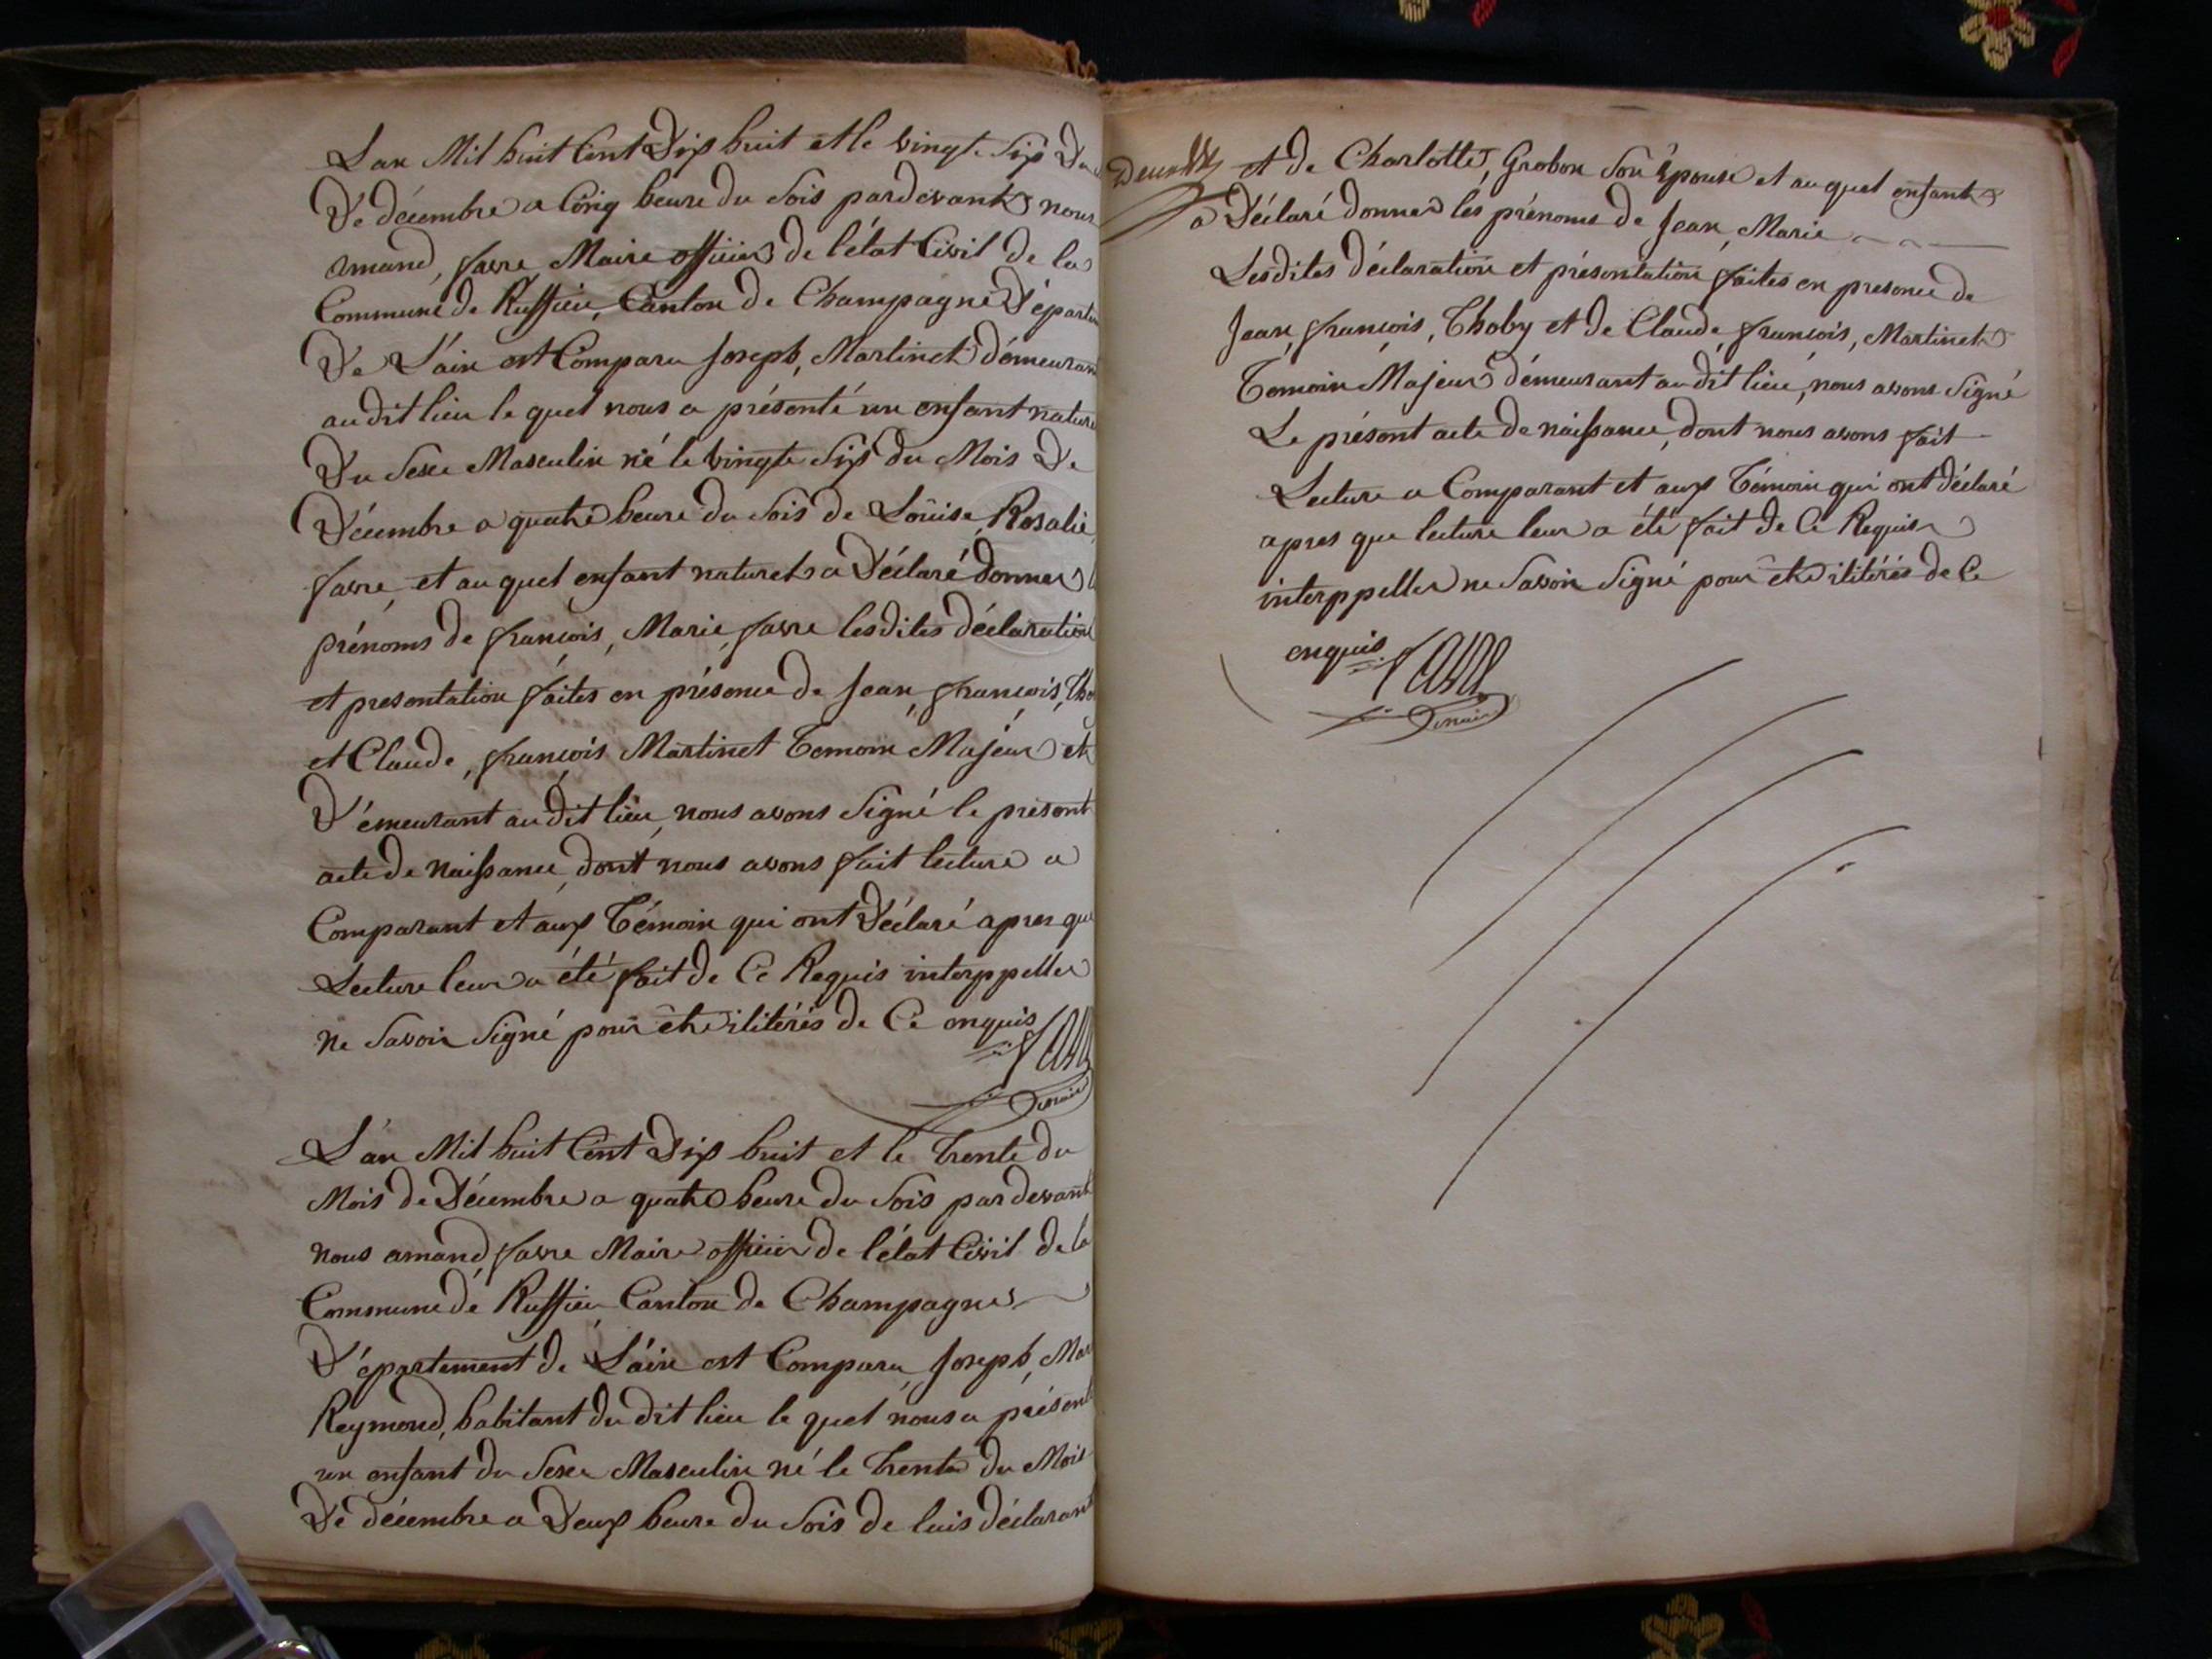 L'an Mil huit Cent Dix huit et le vingt Six Du
De décembre a Cinq heure du Sois pardevant nous
amand, favre Maire officier de l'état Civil de la
Commune de Ruffieu, Canton de Champagne Départe
De L'ain est Comparu Joseph, Martinet démeurant
au dit lieu le quel nous a présenté un enfant nature
Du Sexe Masculin né le vingte Six du Mois De
Décembre a quatre heure du Sois de Loüise, Rosalie,
favre, et au quel enfant naturel a Déclaré donner
prénoms de françois, Marie, favre lesdites déclaration
et presentation faites en présence de Jean, françois, Tho
et Claude, françois Martinet Temoin Majeur et
Démeurant au dit lieu, nous avons Signé le présent
acte de Naissance, dont nous avons fait lecture a
Comparant et aux Témoin qui ont Déclaré apres que
Lecture leur a été fait de Ce Requis interppeller
ne Savoir Signé pour être ilitérés de Ce enquis
favre
maire
L'an Mil huit Cent Dix huit et le trente du
Mois de Décembre a quatre heure du Sois pardevant
nous amand, favre Maire officier de l'état Civil de la
Commune de Ruffieu Canton de Champagne
Département de L'ain est Comparu, Joseph, Mar
Reymond, habitant du dit lieu le quel nous a présenté
un enfant du Sexe Masculin né le trente du Mois
De décembre a Deux heure du Sois de luis déclarant
et de Charlotte, Grobon Son Epouse et au quel enfant
a Déclaré donner les prénoms de Jean, Marie
Lesdites déclaration et présentation faites en presence de
Jean, françois, Thoby et de Claude, françois, Martinet
Temoin Majeur démeurant au dit lieu, nous avons Signé
Le présent acte de naissance, dont nous avons fait
Lecture a Comparant et aux Témoin qui ont déclaré
apres que lecture leur a été fait de Ce Requis
interppeller ne Savoir Signé pour être ilitérés de Ce
enquis favre
maire